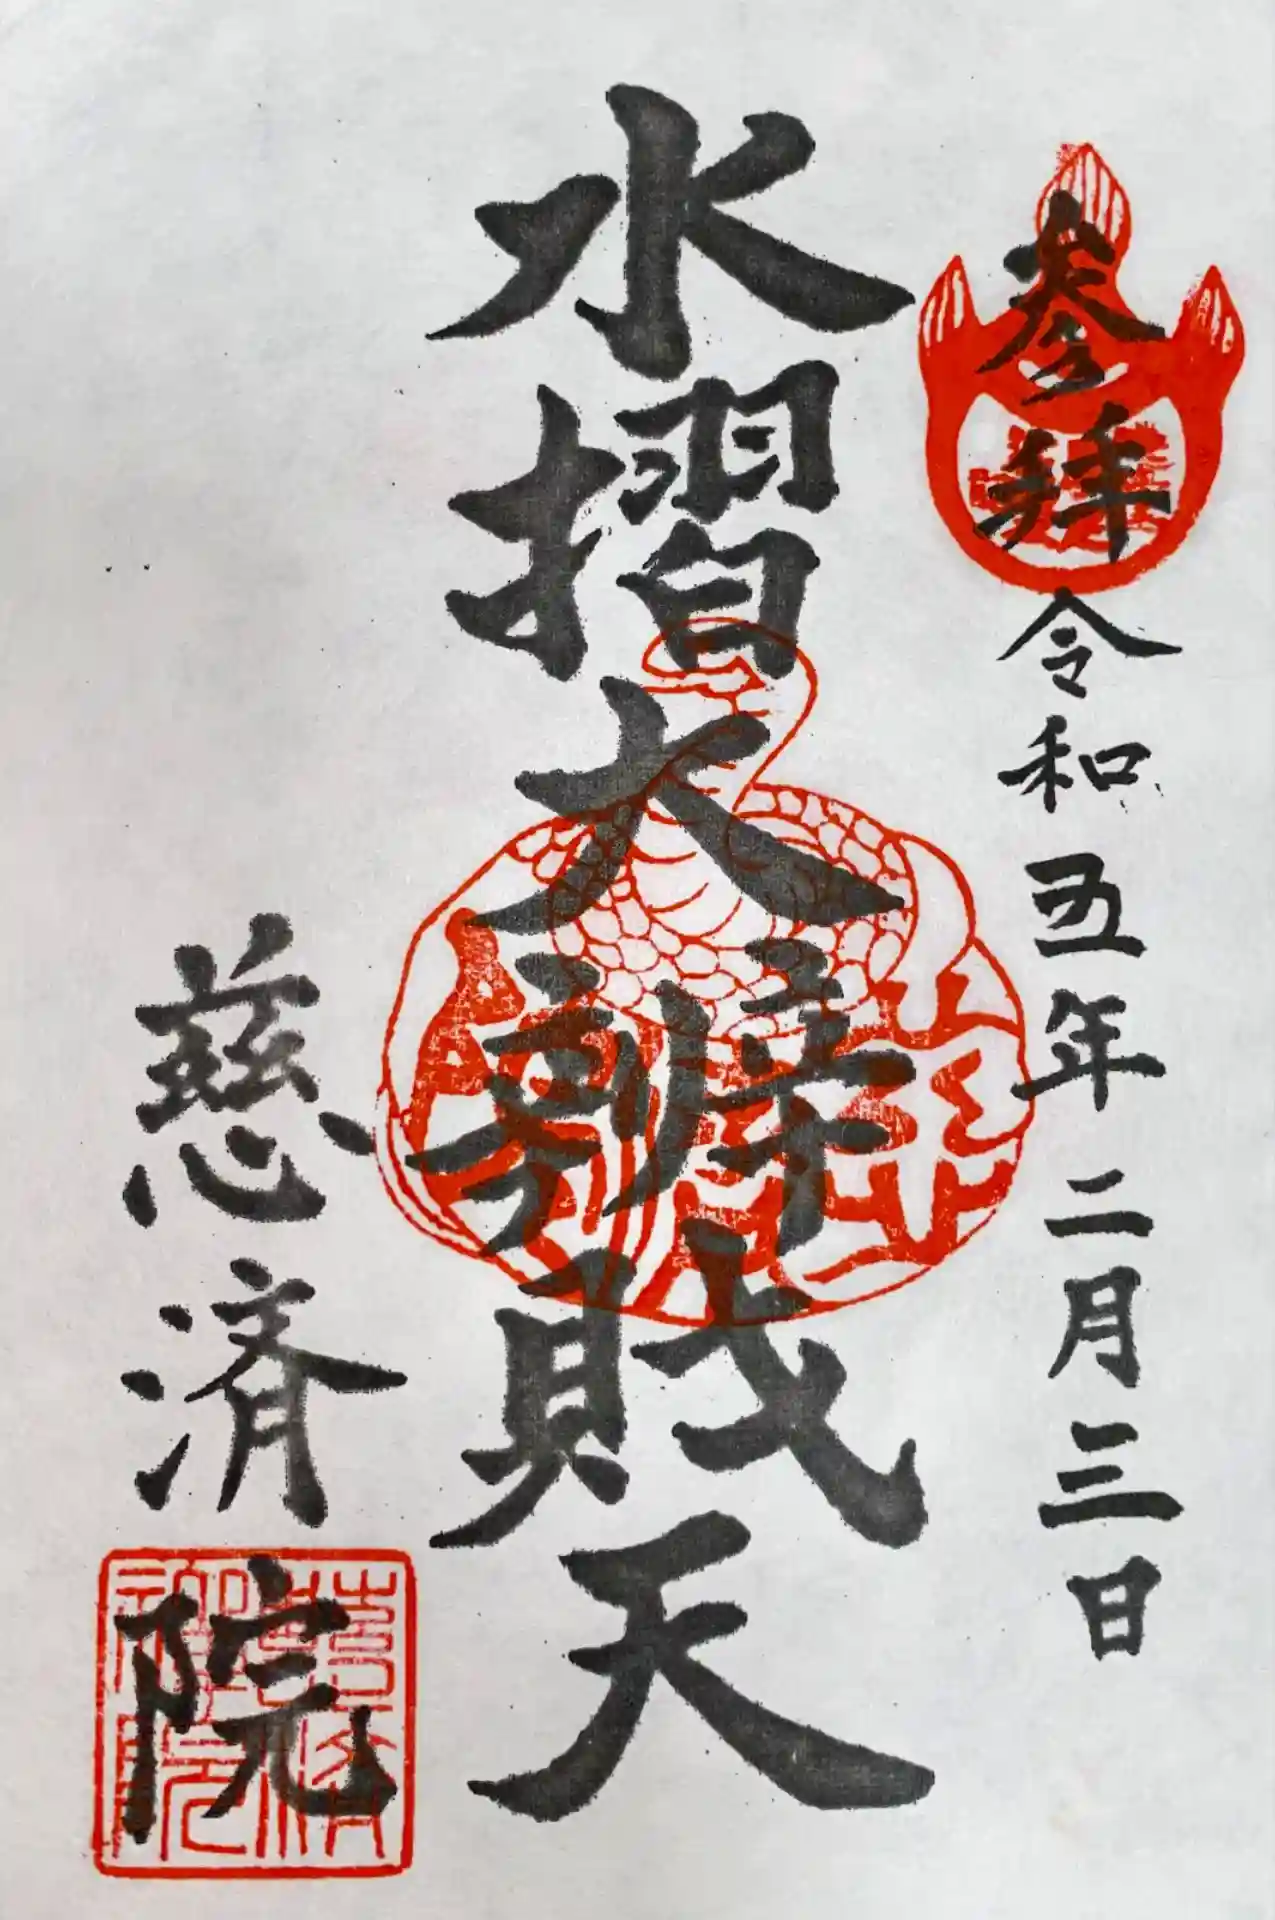 参拝 令和五年二月三日
水摺大辨財天
慈済院